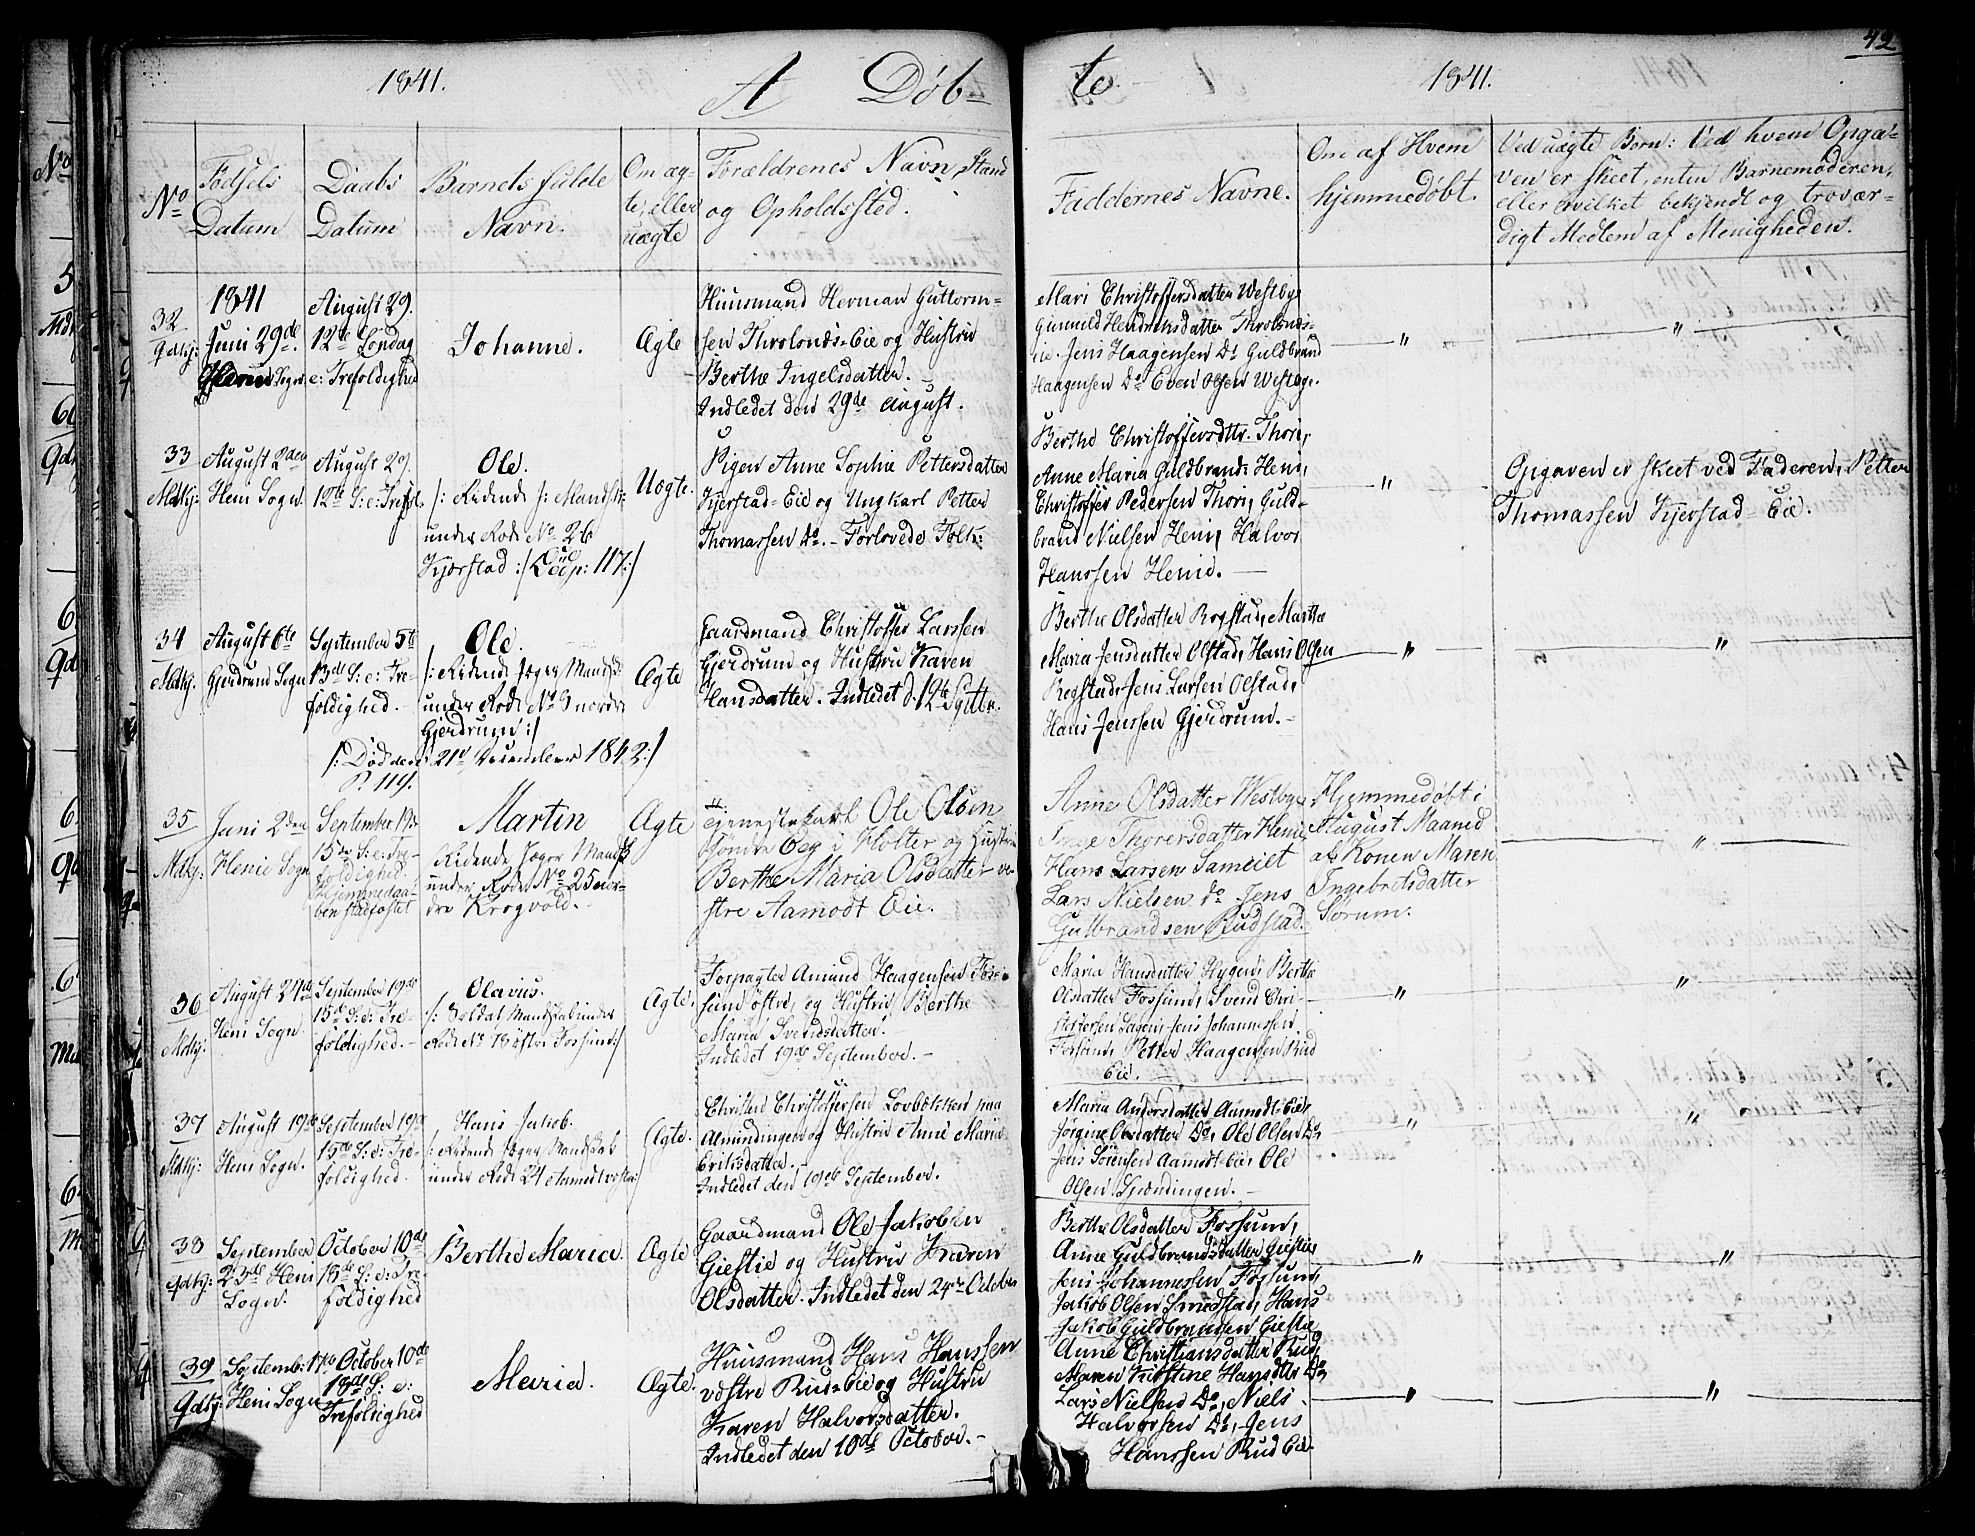 1841.
A Døb-
te
1841.
42
No
Fødsels Datum
Daabs Datum
Barnets fulde Navn.
Om æg-
te, eller
uægte
Forældrenes Navn, Stand
og Opholdssted.
Faddernes Navne.
Om af Hvem
hjemmedøbt.
Ved uægte Børn: Ved hvem Opga-
ven er skeet, enten Barnemoderen,
eller hvilket bekjendt og trovær-
digt Medlem af Menigheden.
32
Qdkj:
1841
Juni 29de.
Heni Sogn.
August 29.
12te Søndag
e: Trefoldighed
Johanne.
Ægte
Huusmand Herman Guttorm-
sen Throlonds-Eie og Hustru
Berthe Ingelsdatter.
Indledet den 29de August.
Mari Christoffersdatter Westbye
Gunnild Hendriksdatter Throlonds-
eie. Jens Haagensen Do Guldbrand
Haagensen Do Even Olsen Westbye.
33
Mdkj:
August 2den
Heni Sogn.
August 29.
12te S: e: Trefol.
Ole.
under Rode No 26
Kjærstad :/
Uægte.
Pigen Anne Sophie Pettersdatter
Kjerstad-Eie og Ungkarl Petter
Thomassen Do. - Forlovede Folk:
Berthe Christoffersdttr. Thori,
Anne Maria Guldbrands Heni,
Christoffer Pedersen Thori, Guld-
brand Nielsen Heni, Halvor
Hanssen Henie.
Opgaven er skeet ved Faderen, Petter
Thomassen Kjerstad-Eie.
34
Mdkj:
August 6te
Gjerdrum Sogn
September 5te
13de S: e: Tre-
foldighed.
Ole.
/: Ridende Jæger Mandsk:
under Rode No 9 nordre
Gjerdrum :/
/: Død den 21de November 1842 :/
P. 119.
Ægte
Gaardmand Christoffer Larssen
Gjerdrum og Hustru Karen
Hansdatter. Indledet d. 12te Septbr.
Berthe Olsdatter Rogstad, Marthe
Maria Jensdatter Olstad, Hans Olsen
Rogstad, Jens Larsen Olstad,
Hans Jenssen Gjerdrum.
35
Mdkj:
Juni 2den
Henie Sogn
September 19de
15de S: e: Tre-
foldighed.
Hjemmedaa-
ben stadfæstet
Martin
Ridende Jæger Mandsk
under Rode No 25 nor-
dre Krogvold.
Ægte
Tjenestekarl Ole Olsen
søndre Eeg i Holter og Hustru
Berthe Maria Olsdatter ve-
stre Aamodt Eie.
Anne Olsdatter Westbye
Anne Thorersdatter Henie
Hans Larsen Sameiet
Lars Nielsen do Jens
Gulbrandsen Rudstad.
Hjemmedøbt i
August Maaned
af Konen Maren
Ingebretsdatter
Sørum.
36
Mdkj:
August 24de
Heni Sogn
September 19de
15de S: e: Tre-
foldighed.
Olavus.
/: Soldat Mandskab under
Rode No 18 østre Forsund :/
Ægte.
Forpagter Amund Haagensen Fos-
sund østre, og Hustru Berthe
Maria Svendsdatter.
Indledet 19de September.
Maria Hansdatter Hygen, Berthe
Olsdatter Fossund, Svend Chri-
stoffersen Hagen, Jens Johannessen
Fossund, Petter Haagensen Rud
Eie.
37
Mdkj:
August 19de
Heni Sogn.
September 19de
15de S: e: Tre-
foldighed.
Hans Jakob.
/: Ridende Jæger Mandskab
under Rode 24 Aamodt vestre :/
Ægte.
Christen Christoffersen Lovbækken paa
Almindingen og Hustru Anne Maria
Eriksdatter.
Indledet den 19de September.
Maria Andersdatter Aamodt-Eie,
Jørgine Olsdatter Do, Ole Olsen Do,
Jens Sørensen Aamodt-Eie, Ole
Olsen Spændingen.
38
Qdkj:
September
23de Heni
Sogn.
October 10de
18de S: e: Tre-
foldighed
Berthe Maria.
Ægte
Gaardmand Ole Jakobsen
Giestie og Hustru Karen
Olsdatter. Indledet den 24de October
Berthe Olsdatter Fossum,
Anne Guldbrandsdatter Giestie,
Jens Johannessen Fossum,
Jakob Olsen Smedstad, Hans
Jakob Guldbrandsen Giestie
39
Qdkj:
Septemb: 17de
Heni Sogn
October 10de
18de S: e:
Trefoldighed
Maria.
Ægte.
Huusmand Hans Hanssen
vestre Rud-Eie og Hustru
Karen Halvorsdatter.
Indledet den 10de October.
Anne Christiansdatter Rud,
Maren Kirstine Hansdtter Do,
Lars Nielsen Do, Niels
Halvorsen Do, Jens
Hanssen Rud Eie